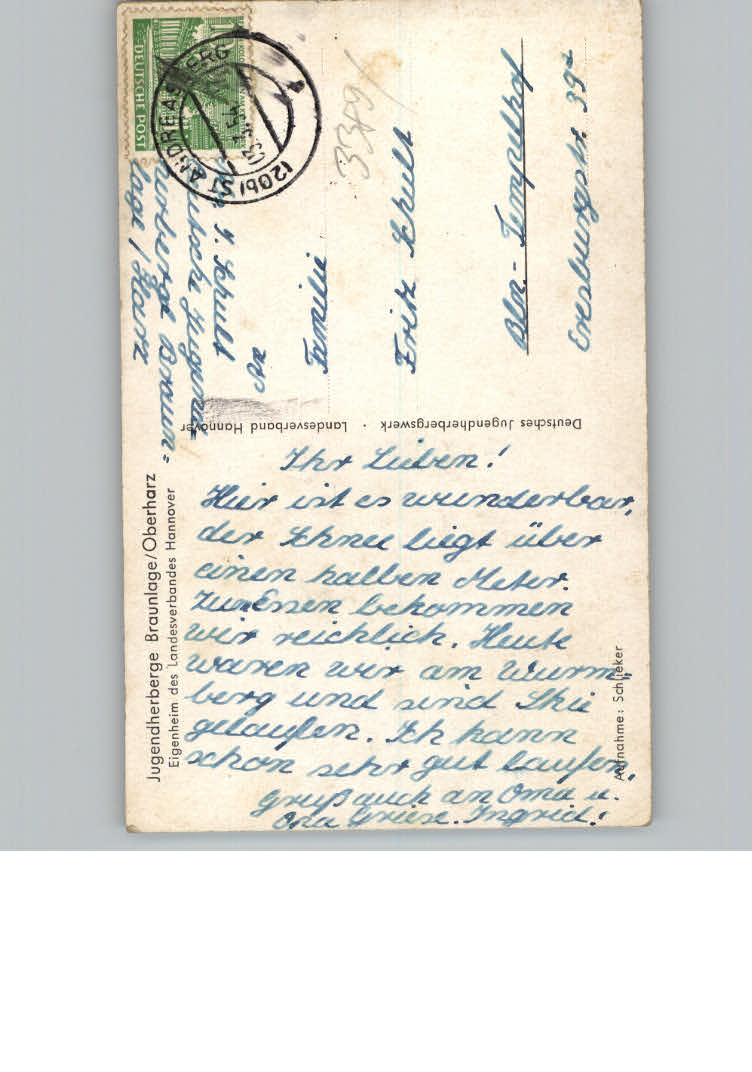 Jugendherberge Braunlage/Oberharz
Eigenheim des Landesverbandes Hannover
Ihr Lieben!
Hier ist es wunderbar,
der Schnee liegt über
einen halben Meter.
Zum Essen bekommen
wir reichlich. Heute
waren wir am Wurm-
berg und sind Ski
gelaufen. Ich kann
schon sehr gut laufen.
Gruß auch an Oma u.
Opa Griese. Ingrid!
Aufnahme: Schlieker
Deutsches Jugendherbergswerk · Landesverband Hannover
DEUTSCHE POST
10
(20b) ST. ANDREASBERG
3389/
I. Schult
Jugend-
herberge Braun=
lage / Harz
An
Familie
Fritz Schult
Bln.-Tempelhof
Eresburgstr. 39a